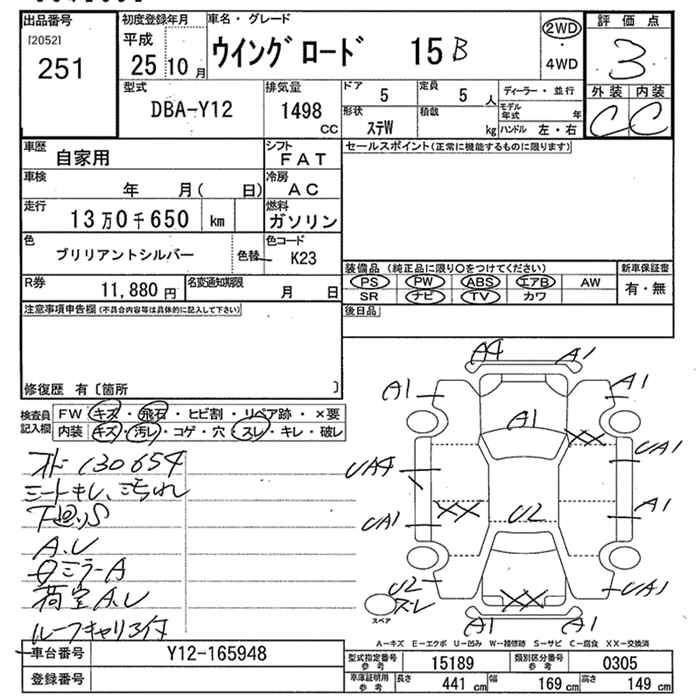 出品番号
[2052]
251
初度登録年月
平成
25 10 月
車名・グレード
ウイングロード 15B
2WD
・
4WD
評価点
3
外装 内装
C C
型式
DBA-Y12
排気量
1498 cc
ドア 5
定員 5 人
形状 ステW
積載 kg
ディーラー・並行
モデル年式 年
ハンドル 左・右
車歴
自家用
シフト
FAT
車検
年 月( 日)
冷房
AC
走行
13万0千650 km
燃料
ガソリン
色
ブリリアントシルバー
色替
色コード
K23
R券
11,880 円
名変通知期限
月 日
セールスポイント(正常に機能するものに限ります)
装備品 (純正品に限り○をつけてください)
PS PW ABS エアB AW
SR ナビ TV カワ
新車保証書
有・無
注意事項申告欄(不具合内容等は具体的に記入して下さい)
後日品
修復歴 有〔箇所 〕
検査員記入欄
FW キズ・飛石・ヒビ割・リペア跡・×要
内装 キズ・汚レ・コゲ・穴・スレ・キレ・破レ
オド 130654
シートキレ、汚れ
下廻りS
A.U
ミラーA
荷室A.U
ルーフキャリア付
A4 A1
A1 A1
A1
XX
UA4 UA1
XX A1
UA1 U2
U2 UA1
スレ
スペア
XX
A1 A1
A-キズ E-エクボ U-凹み W-補修跡 S-サビ C-腐食 XX-交換済
車台番号
Y12-165948
登録番号
型式指定番号 参考
15189
類別区分番号 参考
0305
車庫証明用 参考
長さ 441 cm
幅 169 cm
高さ 149 cm